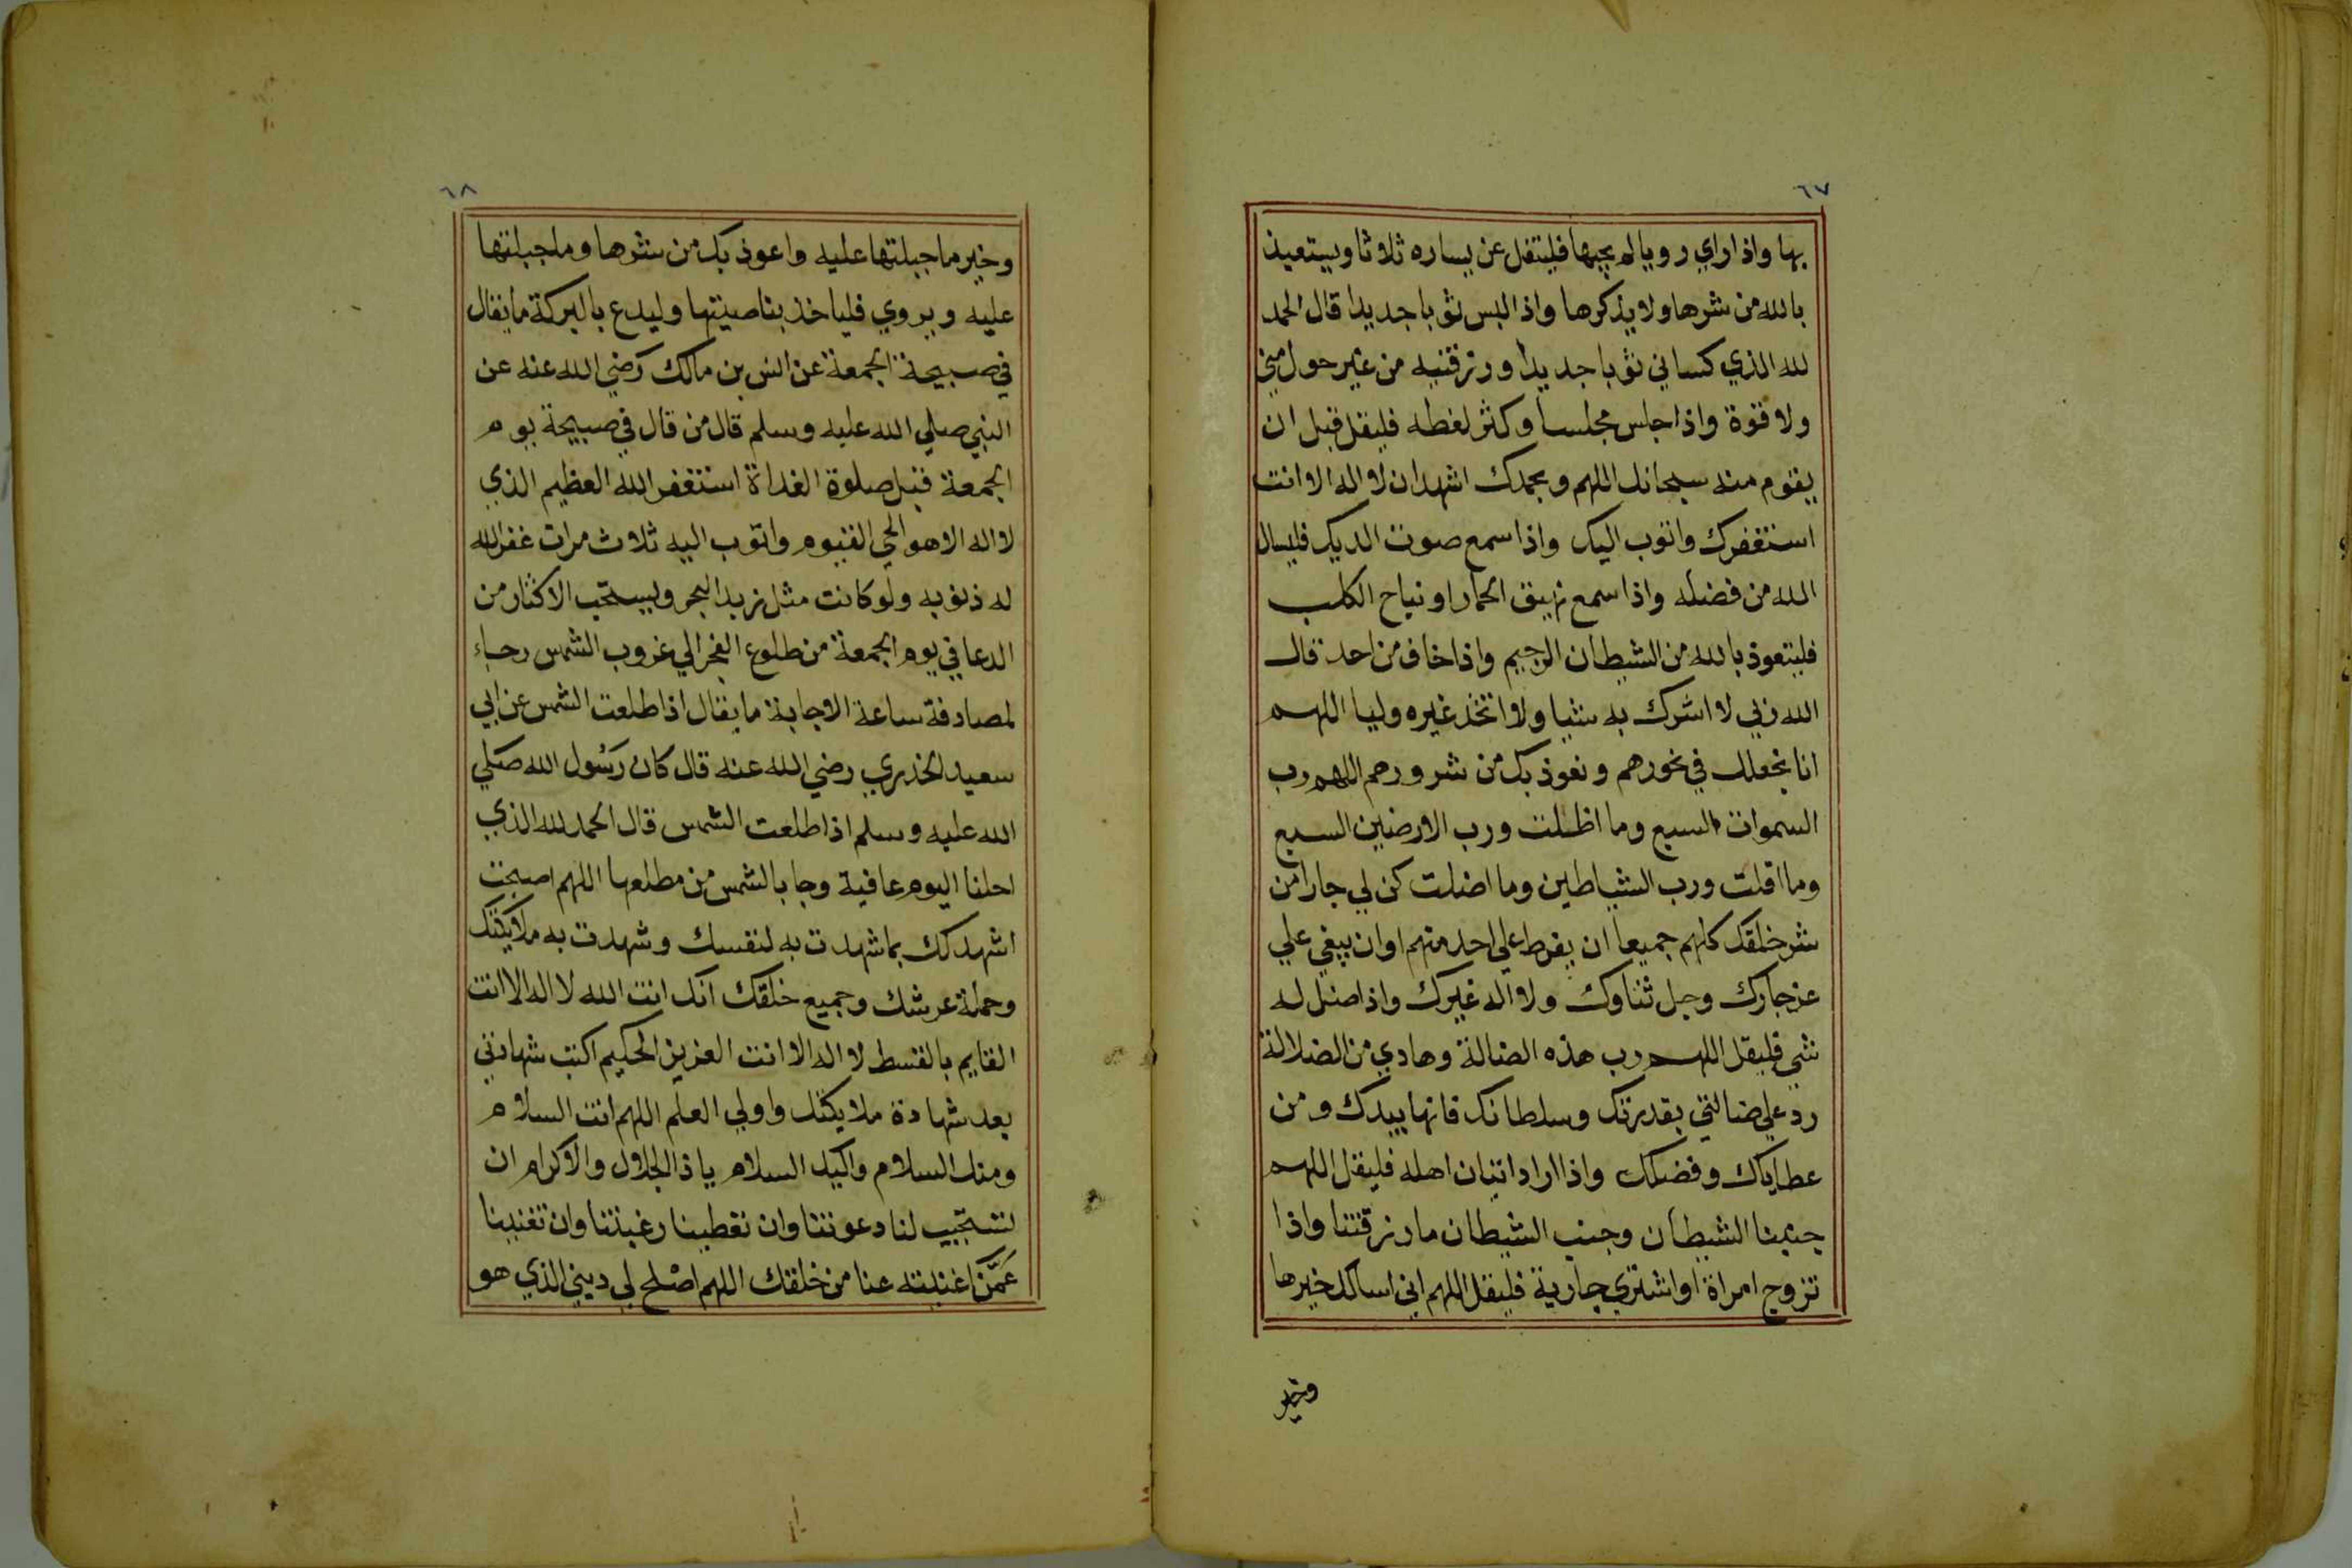 ٦٧
بها واذا راي رويا لم يحبها فليتفل عن يساره ثلاثا ويستعيذ
بالله من شرها ولا يذكرها واذا لبس ثوبا جديدا قال الحمد
لله الذي كساني ثوبا جديدا ورزقنيه من غير حول مني
ولا قوة واذا جلس مجلسا وكثر لغطه فليقل قبل ان
يقوم منه سبحانك اللهم وبحمدك اشهد ان لا اله الا انت
استغفرك واتوب اليك واذا سمع صوت الديك فليسال
الله من فضله واذا سمع نهيق الحمار او نباح الكلب
فليتعوذ بالله من الشيطان الرجيم واذا خاف من احد قال
الله ربي لا اشرك به شيا ولا اتخذ غيره وليا اللهم
انا نجعلك في نحورهم ونعوذ بك من شرورهم اللهم رب
السموات السبع وما اظلت ورب الارضين السبع
وما اقلت ورب الشياطين وما اضلت كن لي جارا من
شر خلقك كلهم جميعا ان يفرط علي احد منهم او ان يبغي علي
عز جارك وجل ثناوك ولا اله غيرك واذا ضل له
شي فليقل اللهم رب هذه الضالة وهادي من الضلالة
رد علي ضالتي بقدرتك وسلطانك فانها بيدك ومن
عطاياك وفضلك واذا اراد اتيان اهله فليقل اللهم
جنبنا الشيطان وجنب الشيطان ما رزقتنا واذا
تزوج امراة او اشتري جارية فليقل اللهم اني اسالك خيرها
وخير
٦٨
وخير ما جبلتها عليه واعوذ بك من شرها وما جبلتها
عليه ويروي فلياخذ بناصيتها وليدع بالبركة ما يقال
في صبيحة الجمعة عن انس بن مالك رضي الله عنه عن
النبي صلي الله عليه وسلم قال من قال في صبيحة يوم
الجمعة قبل صلوة الغداة استغفر الله العظيم الذي
لا اله الا هو الحي القيوم واتوب اليه ثلاث مرات غفر الله
له ذنوبه ولو كانت مثل زبد البحر ويستحب الاكثار من
الدعا في يوم الجمعة من طلوع الفجر الي غروب الشمس رجاء
لمصادفة ساعة الاجابة ما يقال اذا طلعت الشمس عن ابي
سعيد الخدري رضي الله عنه قال كان رسول الله صلي
الله عليه وسلم اذا طلعت الشمس قال الحمد لله الذي
احلنا اليوم عافية وجا بالشمس من مطلعها اللهم اصبحت
اشهدك بما شهدت به لنفسك وشهدت به ملايكتك
وحملة عرشك وجميع خلقك انك انت الله لا اله الا انت
القايم بالقسط لا اله الا انت العزيز الحكيم اكتب شهادتي
بعد شهادة ملايكتك واولي العلم اللهم انت السلام
ومنك السلام واليك السلام يا ذا الجلال والاكرام ان
تستجيب لنا دعوتنا وان تعطينا رغبتنا وان تغنينا
عمن اغنيته عنا من خلقك اللهم اصلح لي ديني الذي هو